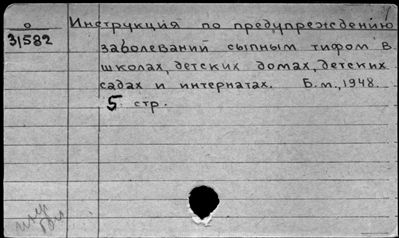 о
31582
Инструкция по предупреждению
заболеваний сыпным тифом в
школах, детских домах, детских
садах и интернатах. Б.м., 1948.
5 стр.